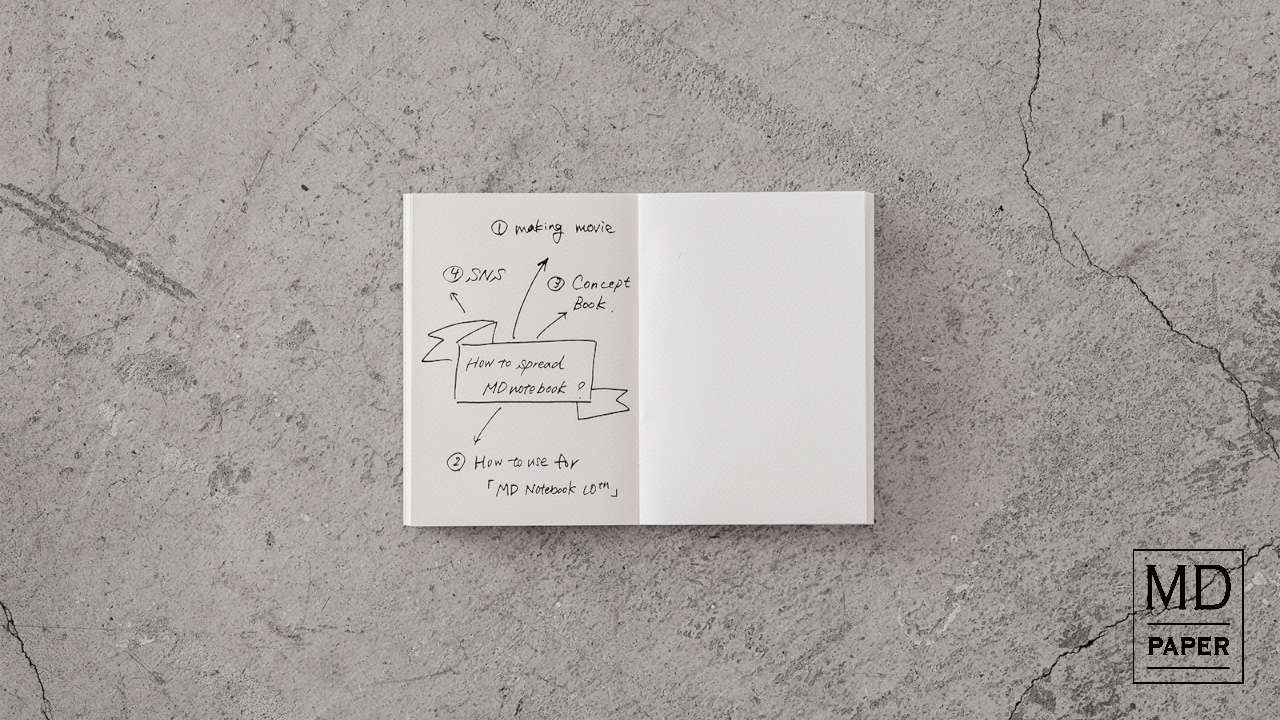 ① making movie
④ SNS
③ Concept
Book.
How to spread
MD notebook ?
② How to use for
「MD Notebook 10th」
MD
PAPER